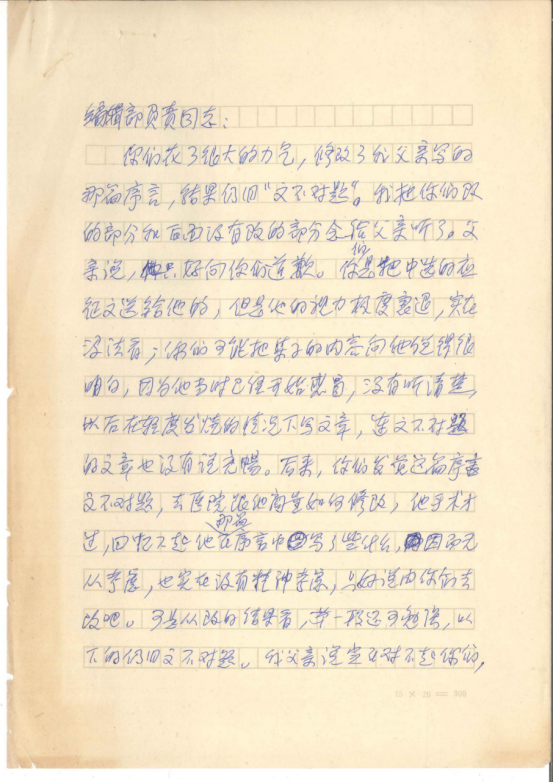 编辑部负责同志：
你们花了很大的力气，修改了我父亲写的
那篇序言，结果仍旧“文不对题”。我把你们改
的部分和后面没有改的部分念给父亲听了。父
亲说，他只好向你们道歉。你们是把中选的应
征文送给他的，但是他的视力极度衰退，实在
没法看；你们可能把集子的内容向他说得很
明白，因为他当时已经开始感冒，没有听清楚，
以后在轻度发烧的情况下写文章，连文不对题
的文章也没有说充畅。后来，你们发觉这篇序言
文不对题，去医院跟他商量如何修改，他手术才
过，回忆不起他在那篇序言中写了些什么，因而无
从考虑，也实在没有精神考虑，只好说由你们去
改吧。可是从改的结果看，第一段还可勉强，以
下的仍旧文不对题。我父亲说实在对不起你们，
15 × 20 = 300